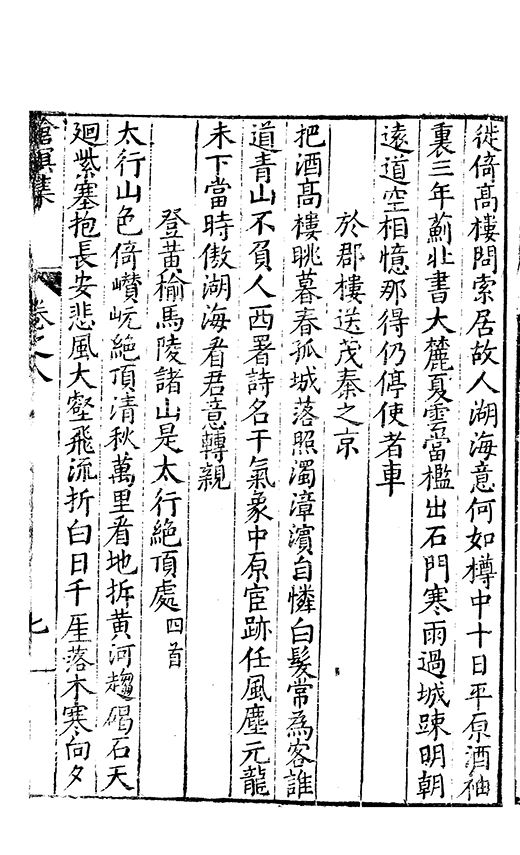 從倚高樓問索居故人湖海意何如樽中十日平原酒袖
裏三年薊北書大麓夏雲當檻出石門寒雨過城踈明朝
遠道空相憶那得仍停使者車
於郡樓送茂秦之京
把酒高樓眺暮春孤城落照濁漳濵自憐白髮常為客誰
道青山不負人西署詩名干氣象中原宦跡任風塵元龍
未下當時傲湖海看君意轉親
登黃榆馬陵諸山是太行絶頂處四首
太行山色倚巑岏絶頂清秋萬里看地拆黃河趨碣石天
迴紫塞抱長安悲風大壑飛流折白日千厓落木寒向夕
滄溟集
卷之八
七